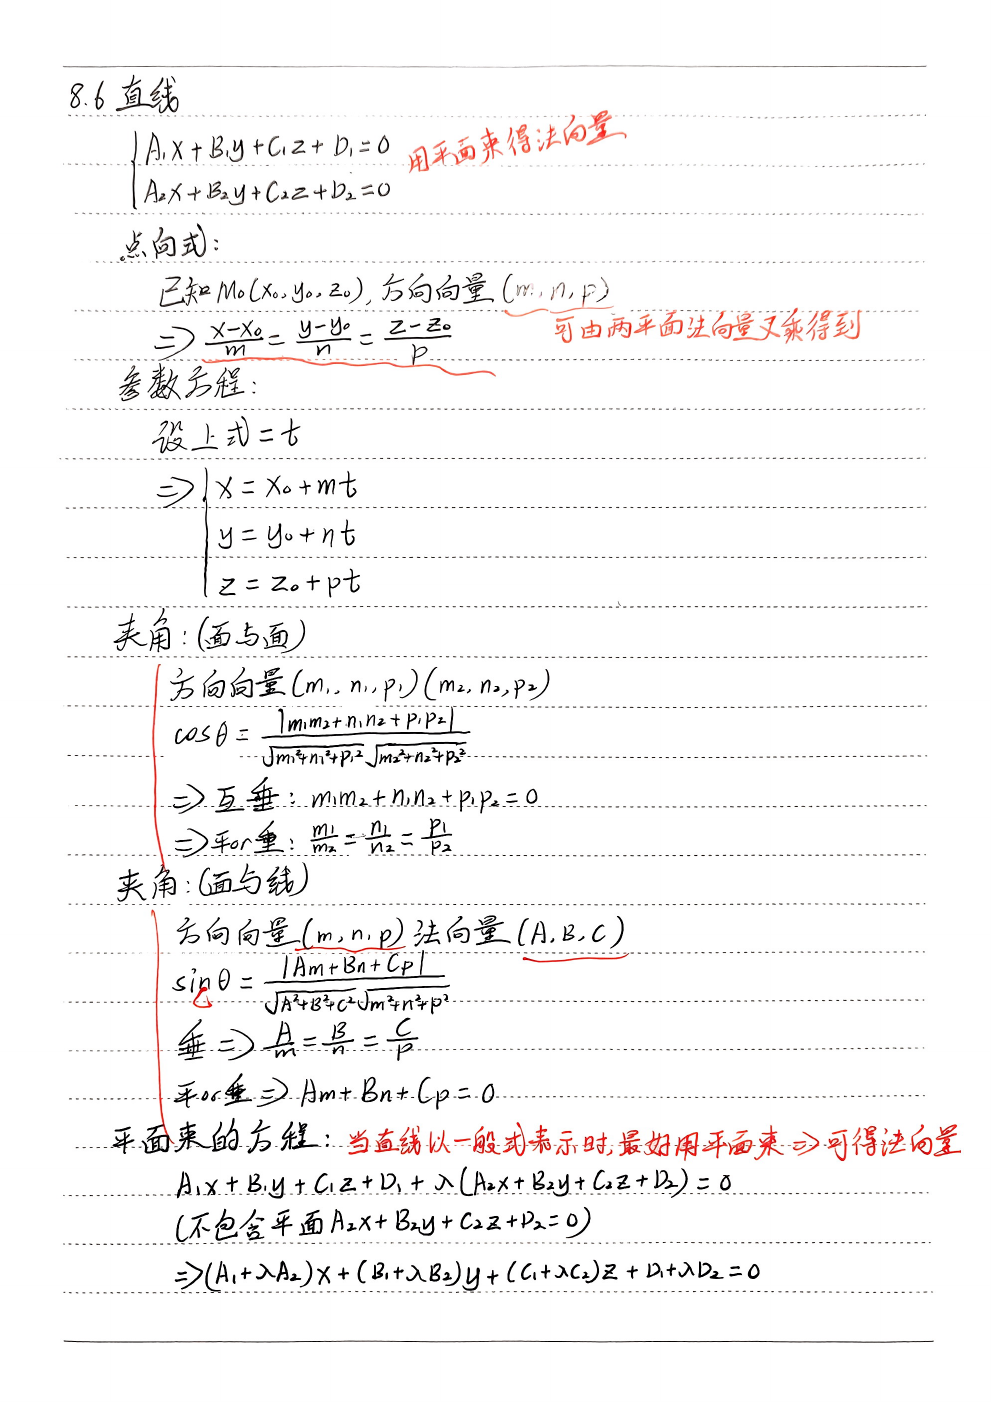 8.6 直线
{ A₁x + B₁y + C₁z + D₁ = 0
用平面束得法向量
A₂x + B₂y + C₂z + D₂ = 0
点向式:
已知 M₀(x₀, y₀, z₀), 方向向量 (m, n, p)
可由两平面法向量叉乘得到
⇒ (x-x₀)/m = (y-y₀)/n = (z-z₀)/p
参数方程:
设上式 = t
⇒ { x = x₀ + mt
y = y₀ + nt
z = z₀ + pt
夹角: (面与面)
方向向量 (m₁, n₁, p₁) (m₂, n₂, p₂)
cosθ = |m₁m₂ + n₁n₂ + p₁p₂| / √m₁²+n₁²+p₁² √m₂²+n₂²+p₂²
⇒ 互垂: m₁m₂ + n₁n₂ + p₁p₂ = 0
⇒ 平or重: m₁/m₂ = n₁/n₂ = p₁/p₂
夹角: (面与线)
方向向量 (m, n, p) 法向量 (A, B, C)
sinθ = |Am + Bn + Cp| / √A²+B²+C² √m²+n²+p²
垂 ⇒ A/m = B/n = C/p
平or重 ⇒ Am + Bn + Cp = 0
平面束的方程: 当直线以一般式表示时, 最好用平面束 ⇒ 可得法向量
A₁x + B₁y + C₁z + D₁ + λ(A₂x + B₂y + C₂z + D₂) = 0
(不包含平面 A₂x + B₂y + C₂z + D₂ = 0)
⇒ (A₁+λA₂)x + (B₁+λB₂)y + (C₁+λC₂)z + D₁+λD₂ = 0